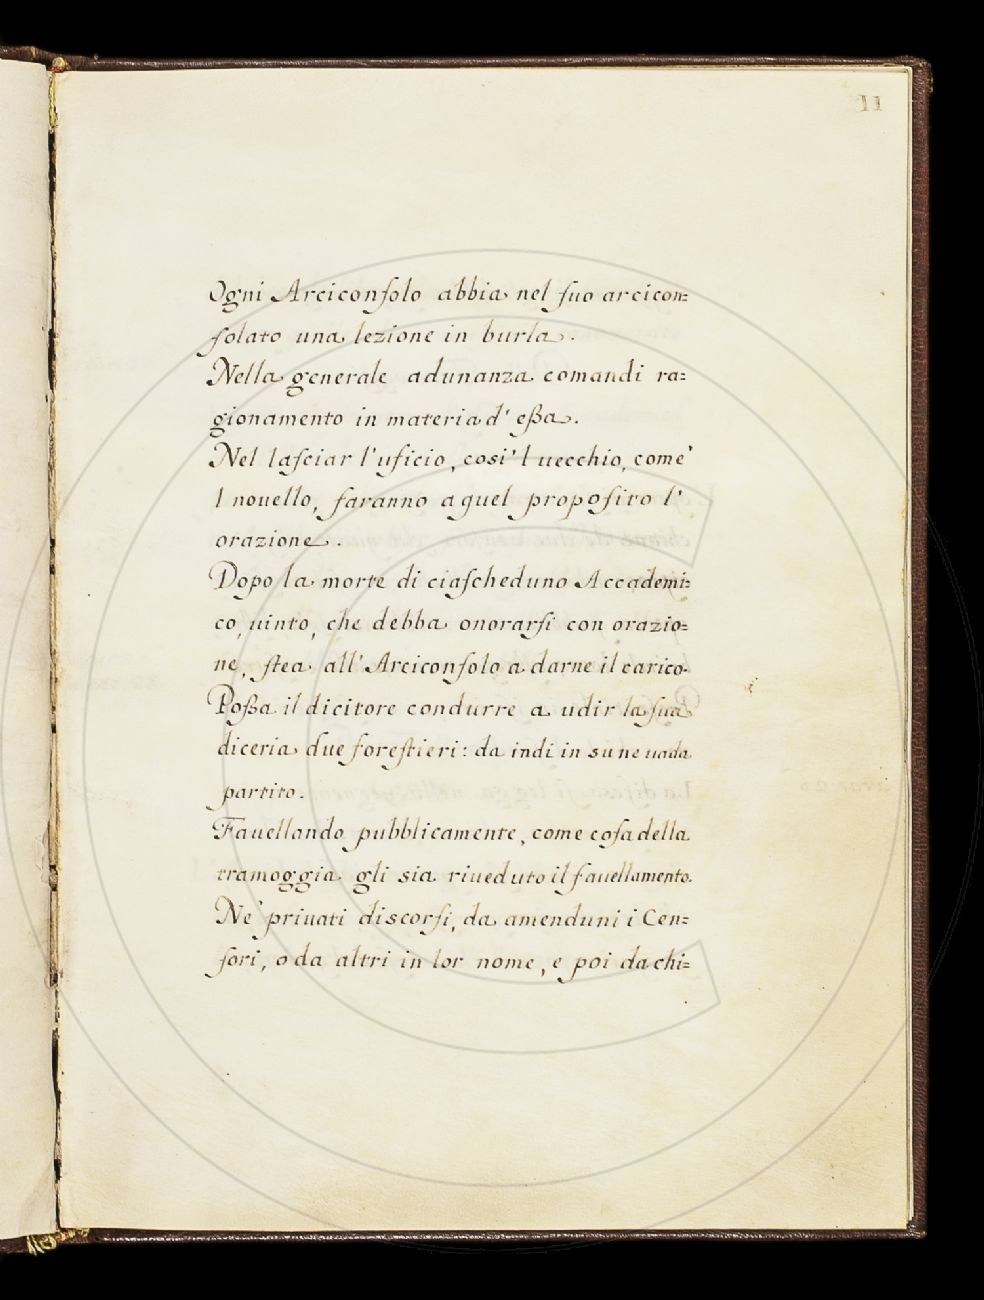 11
Ogni Arciconſolo abbia nel ſuo arcicon=
ſolato una lezione in burla.
Nella generale adunanza comandi ra=
gionamento in materia d' eßa.
Nel laſciar l'uficio, cosi'l uecchio, come'
l nouello, faranno a quel propoſito l'
orazione.
Dopo la morte di ciaſcheduno Accademi=
co, uinto, che debba onorarſi con orazio=
ne, ſtea all'Arciconſolo a darne il carico.
Poßa il dicitore condurre a udir la ſua
diceria due foreſtieri: da indi in su ne uada
partito.
Fauellando pubblicamente, come coſa della
tramoggia gli sia riueduto il fauellamento.
Ne' priuati discorſi, da amenduni i Cen=
ſori, o da altri in lor nome, e poi da chi=